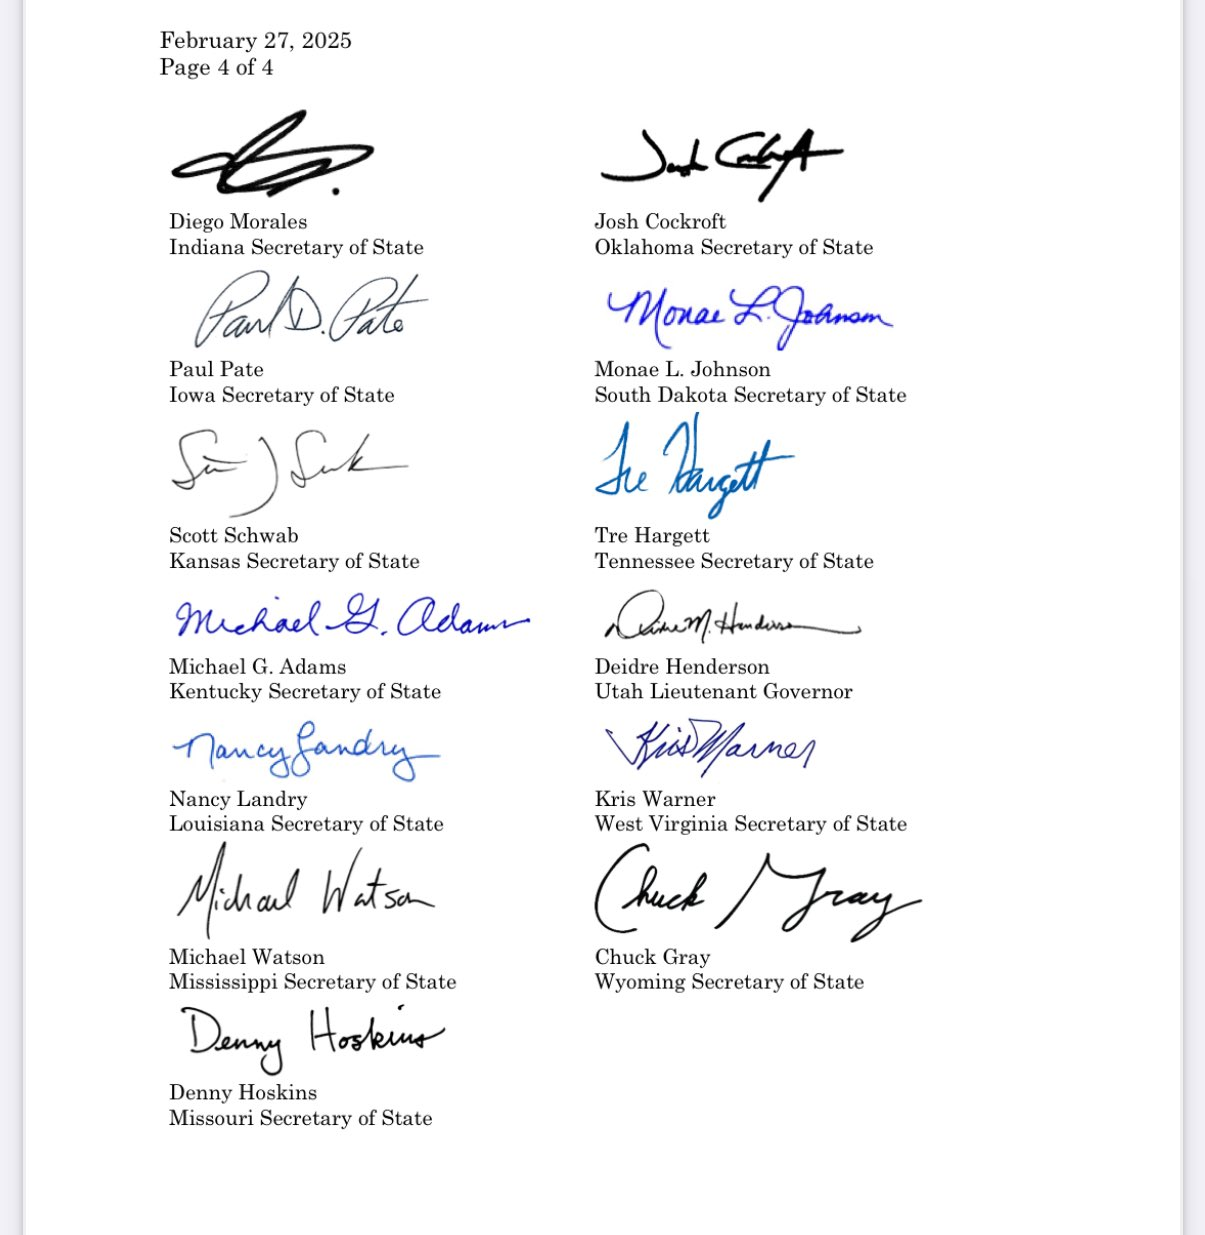 February 27, 2025
Page 4 of 4
Diego Morales
Indiana Secretary of State
Josh Cockroft
Josh Cockroft
Oklahoma Secretary of State
Paul D. Pate
Paul Pate
Iowa Secretary of State
Monae L. Johnson
Monae L. Johnson
South Dakota Secretary of State
Scott Schwab
Kansas Secretary of State
Tre Hargett
Tre Hargett
Tennessee Secretary of State
Michael G. Adams
Michael G. Adams
Kentucky Secretary of State
Deidre M. Henderson
Deidre Henderson
Utah Lieutenant Governor
Nancy Landry
Nancy Landry
Louisiana Secretary of State
Kris Warner
Kris Warner
West Virginia Secretary of State
Michael Watson
Michael Watson
Mississippi Secretary of State
Chuck Gray
Chuck Gray
Wyoming Secretary of State
Denny Hoskins
Denny Hoskins
Missouri Secretary of State